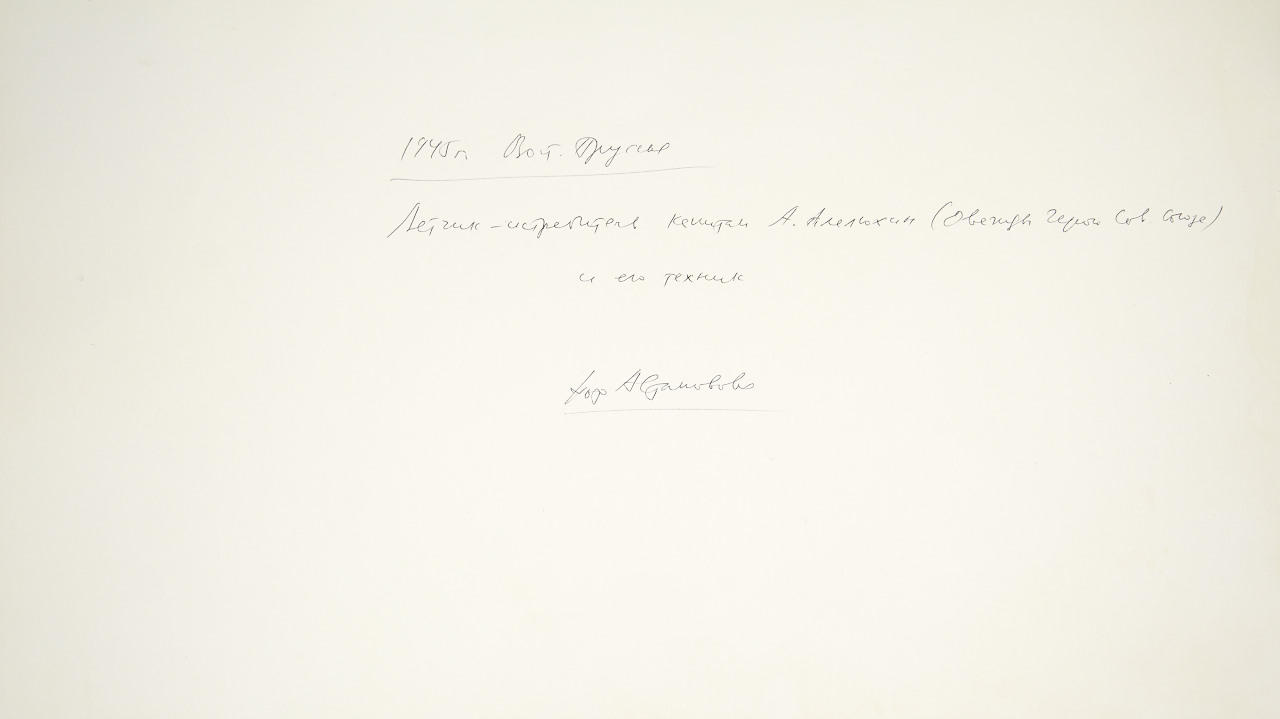 1945г. Вост. Пруссия
Летчик-истребитель капитан А. Алелюхин (Дважды Герой Сов Союза)
и его техник
фото